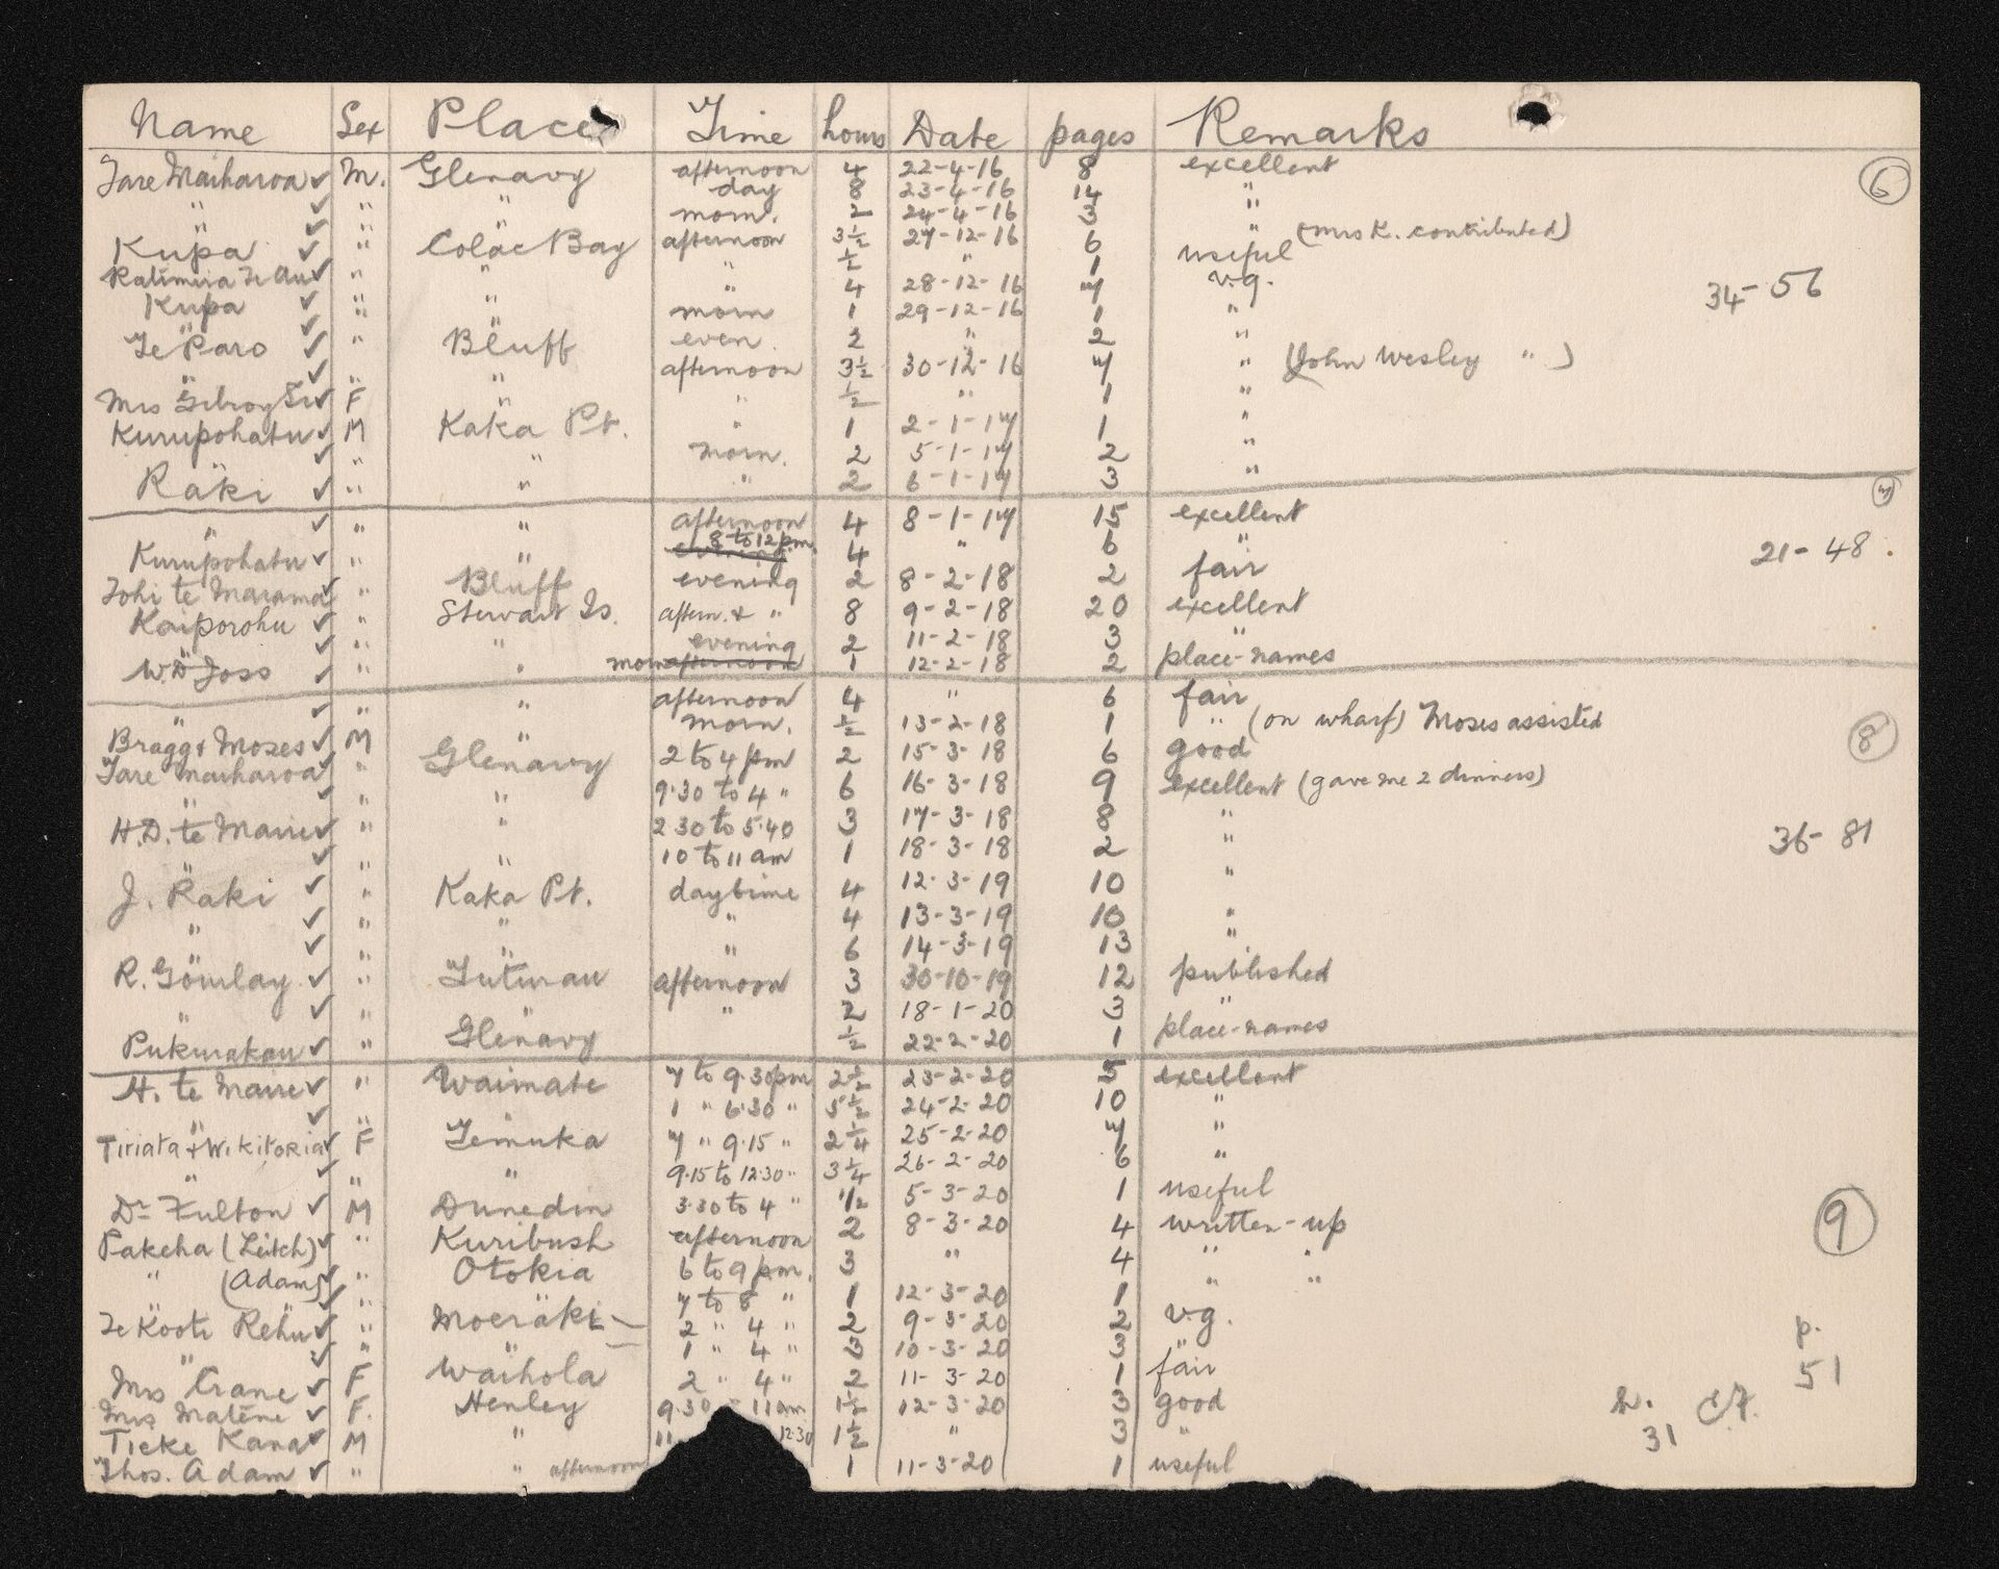 Name Sex Place Time hours Date pages Remarks
Tare Maiharoa ✓ M. Glenavy afternoon 4 22-4-16 8 excellent 6
" ✓ " " day 8 23-4-16 14 "
" ✓ " " morn. 2 24-4-16 3 "
Kupa ✓ " Colac Bay afternoon 3½ 27-12-16 6 " (Mrs K. contributed)
Ratimira Te Au ✓ " " " ½ " 1 useful
Kupa ✓ " " " 4 28-12-16 7 v.g. 34-56
" ✓ " " morn 1 29-12-16 1 "
Te Paro ✓ " Bluff even. 2 " 2 "
" ✓ " " afternoon 3½ 30-12-16 7 " (John Wesley " )
Mrs Gilroy Sr ✓ F " " ½ " 1 "
Kurupohatu ✓ M Kaka Pt. " 1 2-1-17 1 "
" ✓ " " morn. 2 5-1-17 2 "
Raki ✓ " " " 2 6-1-17 3 "
" ✓ " " afternoon 4 8-1-17 15 excellent 7
Kurupohatu ✓ " " evening 8 to 12 pm. 4 " 6 " 21-48
Tohi te Marama ✓ " Bluff evening 2 8-2-18 2 fair
Kaiporohu ✓ " Stewart Is. aftern. & " 8 9-2-18 20 excellent
" ✓ " " evening 2 11-2-18 3 "
W.D Joss ✓ " " morn afternoon 1 12-2-18 2 place-names
" ✓ " " afternoon 4 " 6 fair
Bragg & Moses ✓ M " morn. ½ 13-2-18 1 " (on wharf) Moses assisted
Tare Maiharoa ✓ " Glenavy 2 to 4 pm 2 15-3-18 6 good 8
" ✓ " " 9.30 to 4 " 6 16-3-18 9 excellent (gave me 2 dinners)
H.D. te Maire ✓ " " 2 30 to 5.40 3 17-3-18 8 "
" ✓ " " 10 to 11 am 1 18-3-18 2 " 36-81
J. Raki ✓ " Kaka Pt. daytime 4 12-3-19 10 "
" ✓ " " " 4 13-3-19 10 "
" ✓ " " " 6 14-3-19 13 "
R. Gourlay ✓ " Tuturau afternoon 3 30-10-19 12 published
" ✓ " " " 2 18-1-20 3 "
Pukurakau ✓ " Glenavy ½ 22-2-20 1 place-names
H. te Maire ✓ " Waimate 7 to 9.30pm 2½ 23-2-20 5 excellent
" ✓ " " 1 " 6.30 " 5½ 24-2-20 10 "
Tiriata + Wikitoria ✓ F Temuka 7 " 9.15 " 2¼ 25-2-20 7 "
" ✓ " " 9.15 to 12.30 " 3¼ 26-2-20 6 "
Dr Fulton ✓ M Dunedin 3.30 to 4 " 1/2 5-3-20 1 useful
Pakeha (Leitch) ✓ " Kuribush afternoon 2 8-3-20 4 written-up 9
" (Adam) ✓ " Otokia 6 to 9 pm. 3 " 4 " "
" ✓ " 7 to 8 " 1 12-3-20 1 " "
Te Kooti Rehu ✓ " Moeraki 2 " 4 " 2 9-3-20 2 v.g.
" ✓ " " 1 " 4 " 3 10-3-20 3 " p.
Mrs Crane ✓ F Waihola 2 " 4 " 2 11-3-20 1 fair 51
Mrs Matene ✓ F. Henley 9.30 - 11 am 1½ 12-3-20 3 good h.
Tieke Kana ✓ M " 11 12.30 1½ " 3 " 31
Thos. Adam ✓ " " afternoon 1 11-3-20 1 useful